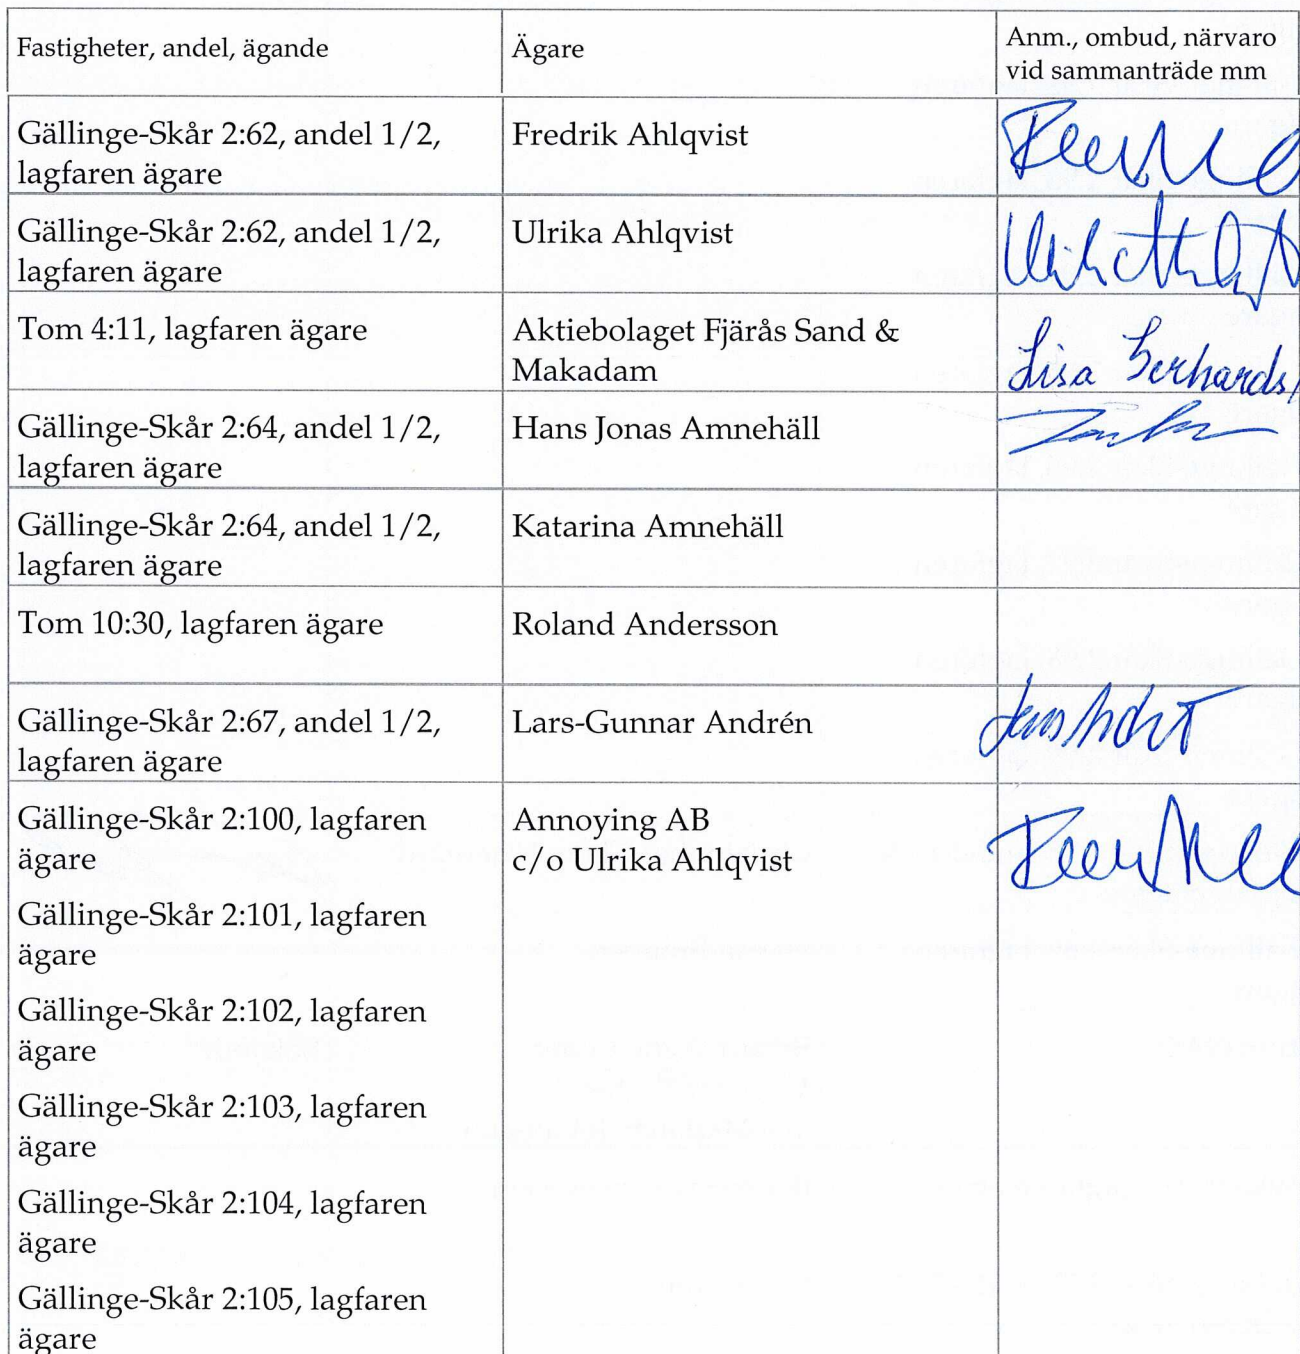 Fastigheter, andel, ägande
Ägare
Anm., ombud, närvaro
vid sammanträde mm
Gällinge-Skår 2:62, andel 1/2,
lagfaren ägare
Fredrik Ahlqvist
Gällinge-Skår 2:62, andel 1/2,
lagfaren ägare
Ulrika Ahlqvist
Tom 4:11, lagfaren ägare
Aktiebolaget Fjärås Sand &
Makadam
Lisa Gerhards
Gällinge-Skår 2:64, andel 1/2,
lagfaren ägare
Hans Jonas Amnehäll
Gällinge-Skår 2:64, andel 1/2,
lagfaren ägare
Katarina Amnehäll
Tom 10:30, lagfaren ägare
Roland Andersson
Gällinge-Skår 2:67, andel 1/2,
lagfaren ägare
Lars-Gunnar Andrén
Gällinge-Skår 2:100, lagfaren
ägare
Annoying AB
c/o Ulrika Ahlqvist
Gällinge-Skår 2:101, lagfaren
ägare
Gällinge-Skår 2:102, lagfaren
ägare
Gällinge-Skår 2:103, lagfaren
ägare
Gällinge-Skår 2:104, lagfaren
ägare
Gällinge-Skår 2:105, lagfaren
ägare